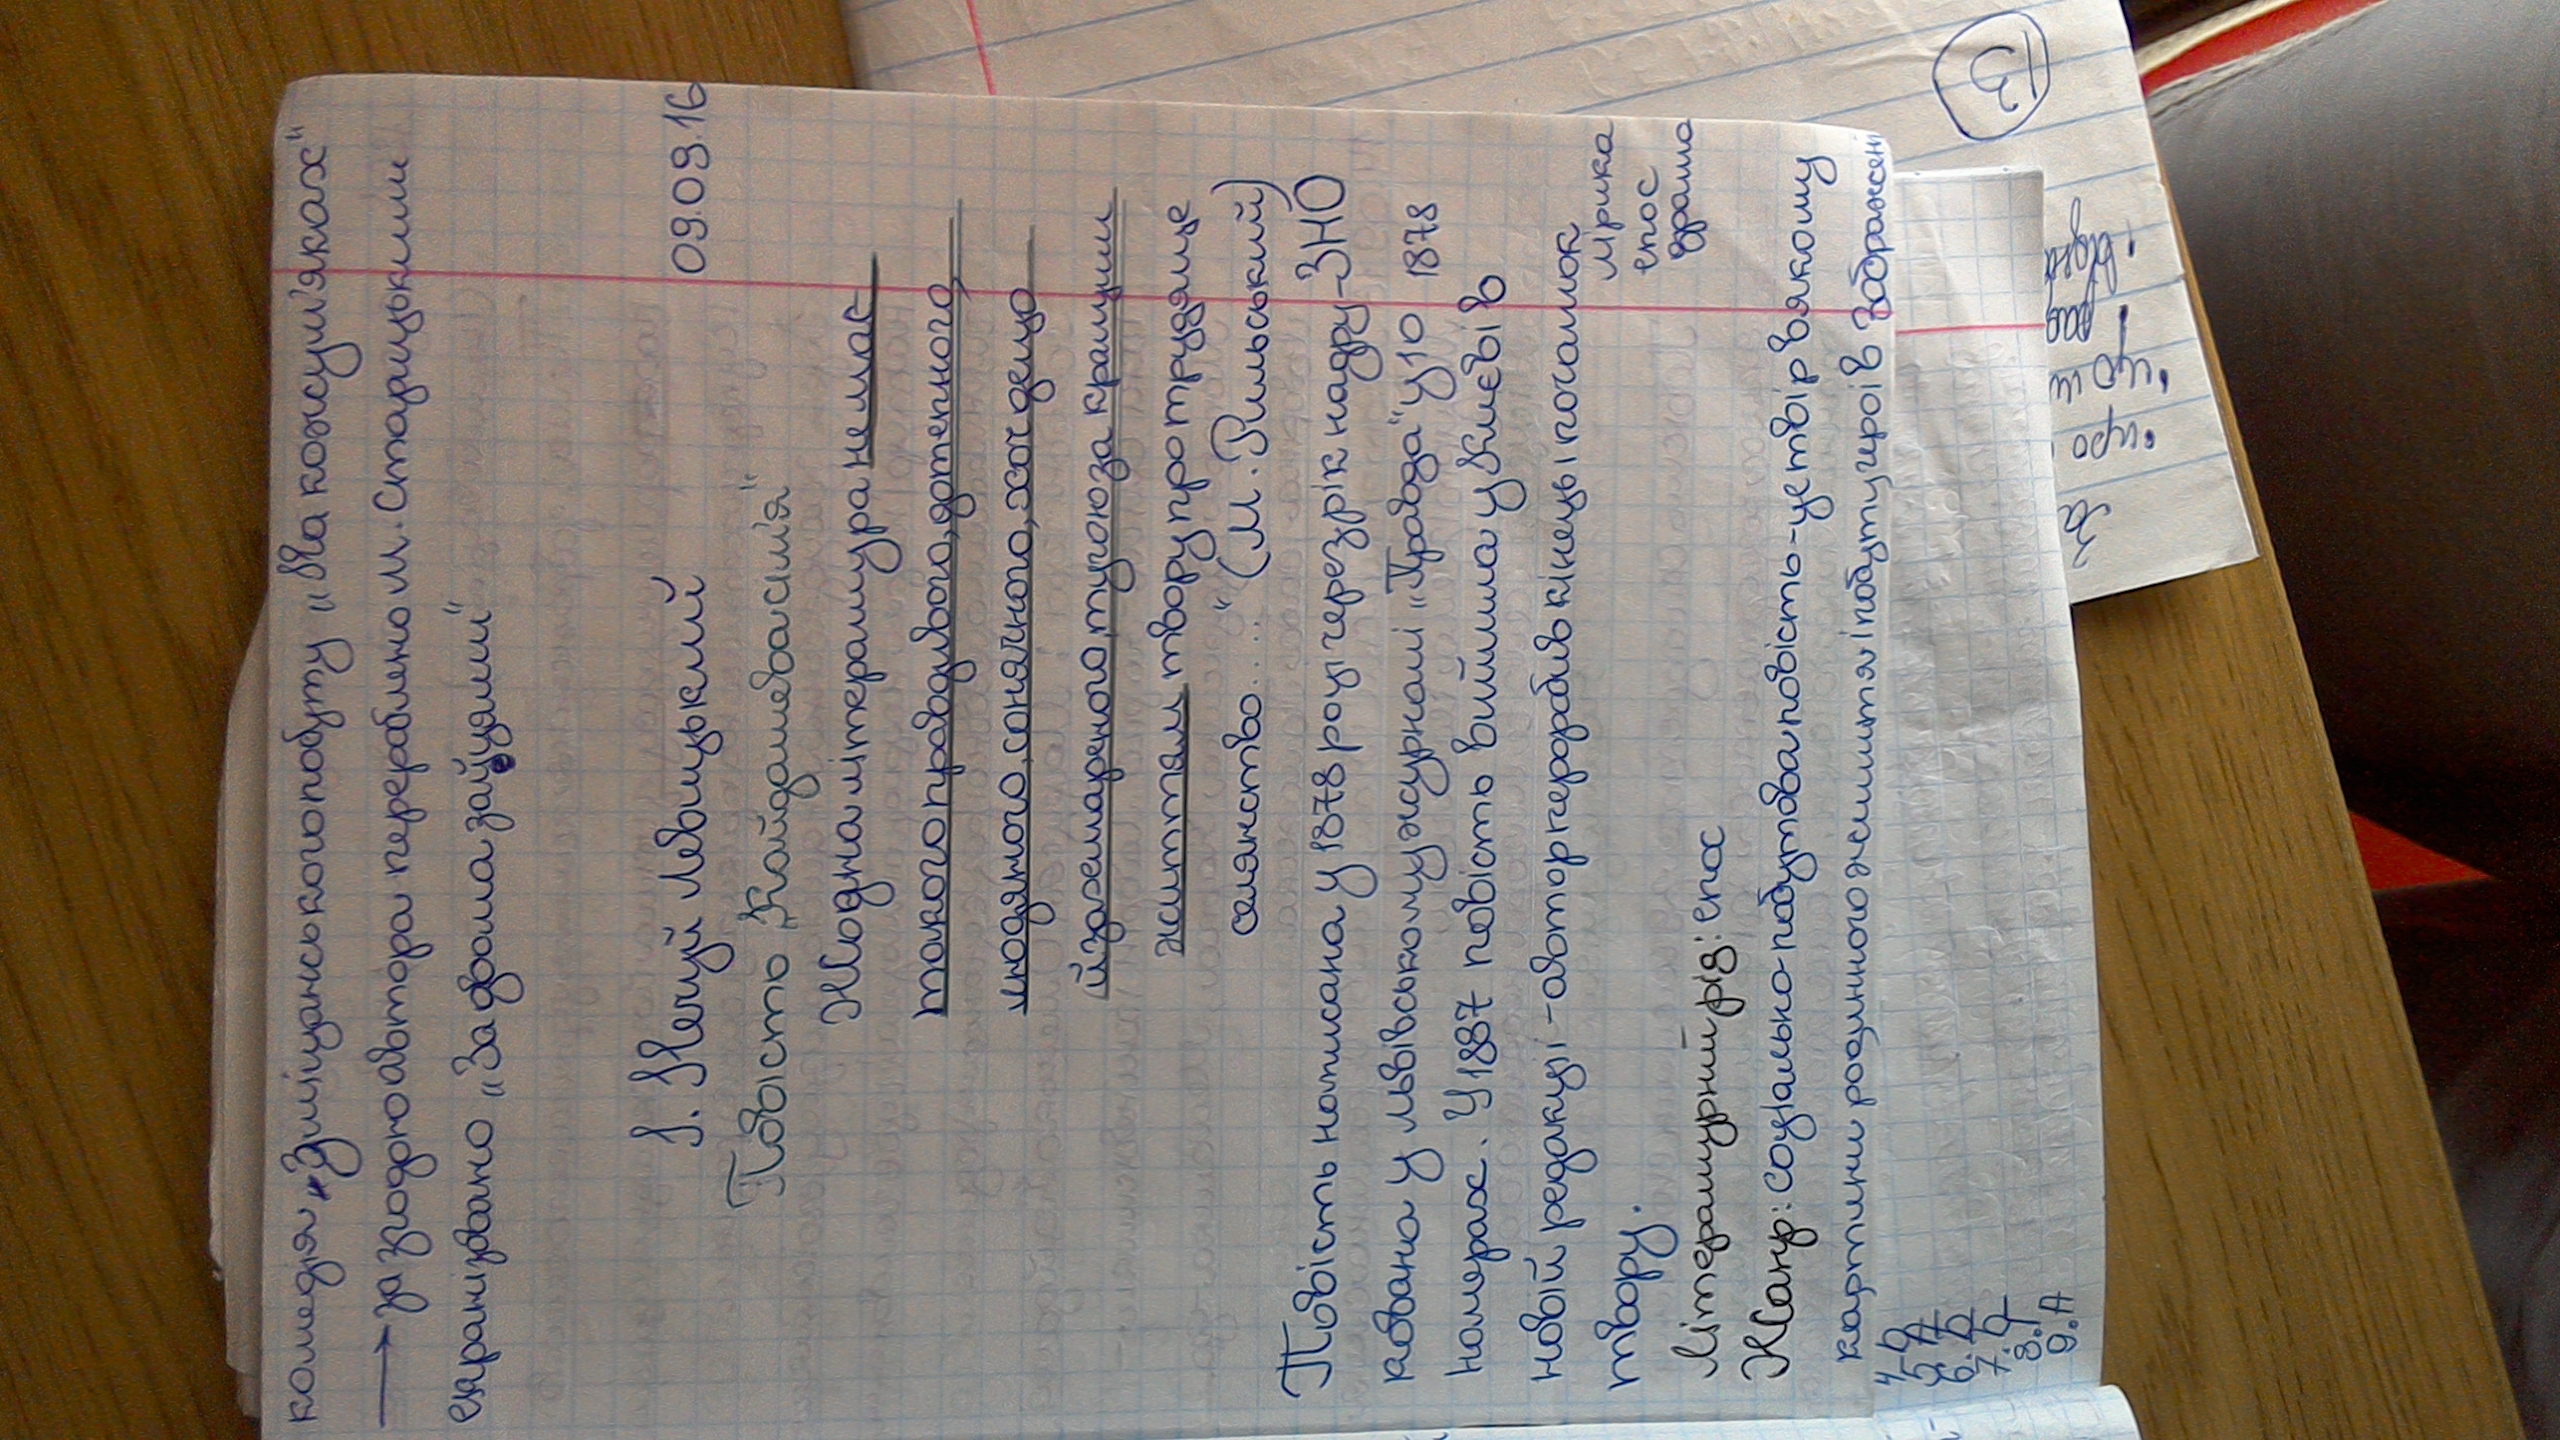 комедія „З міщанського побуту „На кожум'яках"
→ за згодою автора перероблено М. Старицьким
сцранізвано „За двома зайцями"
09.09.16
І. Нечуй Левицький
Повість „Кайдашева сім'я"
Жодна література не має
такого правдивого, дотепного,
людяного, сонячного, хоч дещо
й захмареного тугою за кращим
життям твору про трудяще
селянство...." (М. Рильський)
Повість написана у 1878 році через рік надру-ЗНО
кована у львівському журналі „Правда" у 10 1878
номерах. У 1887 повість вийшла у Києві в
новій редакції - автор переробив кінець і початок
твору.
лірика
епос
драма
Літературний рід: епос
Жанр: соціально-побутова повість - це твір в якому
картини родинного життя і побуту героїв зображені
4. Б
5. А
6. Б
7. Б
8. Г
9. А
3
• відна
• що ш
• про
За